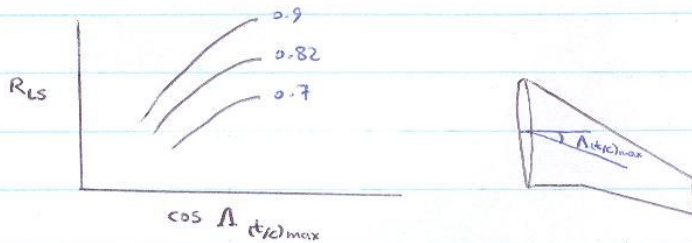 0.9
0.82
0.7
R_LS
cos Λ (t/c)max
Λ(t/c)max